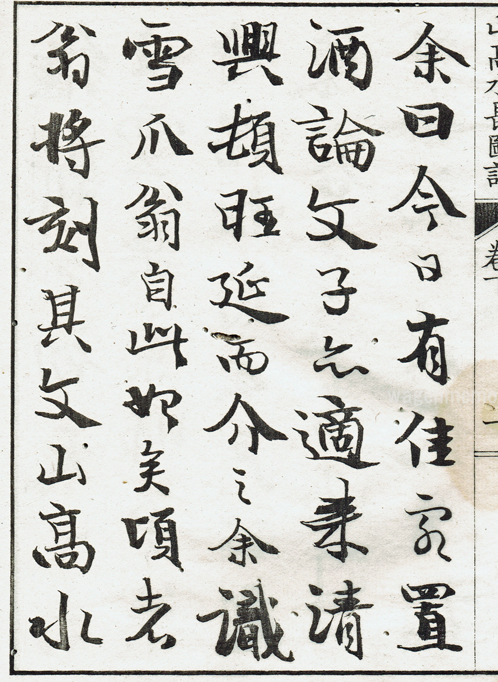 山高水長圖記
卷一
余曰今日有佳客置
酒論文子亦適來清
興頓旺延而分之余識
雪爪翁自此始矣頃者
翁將刻其文山高水